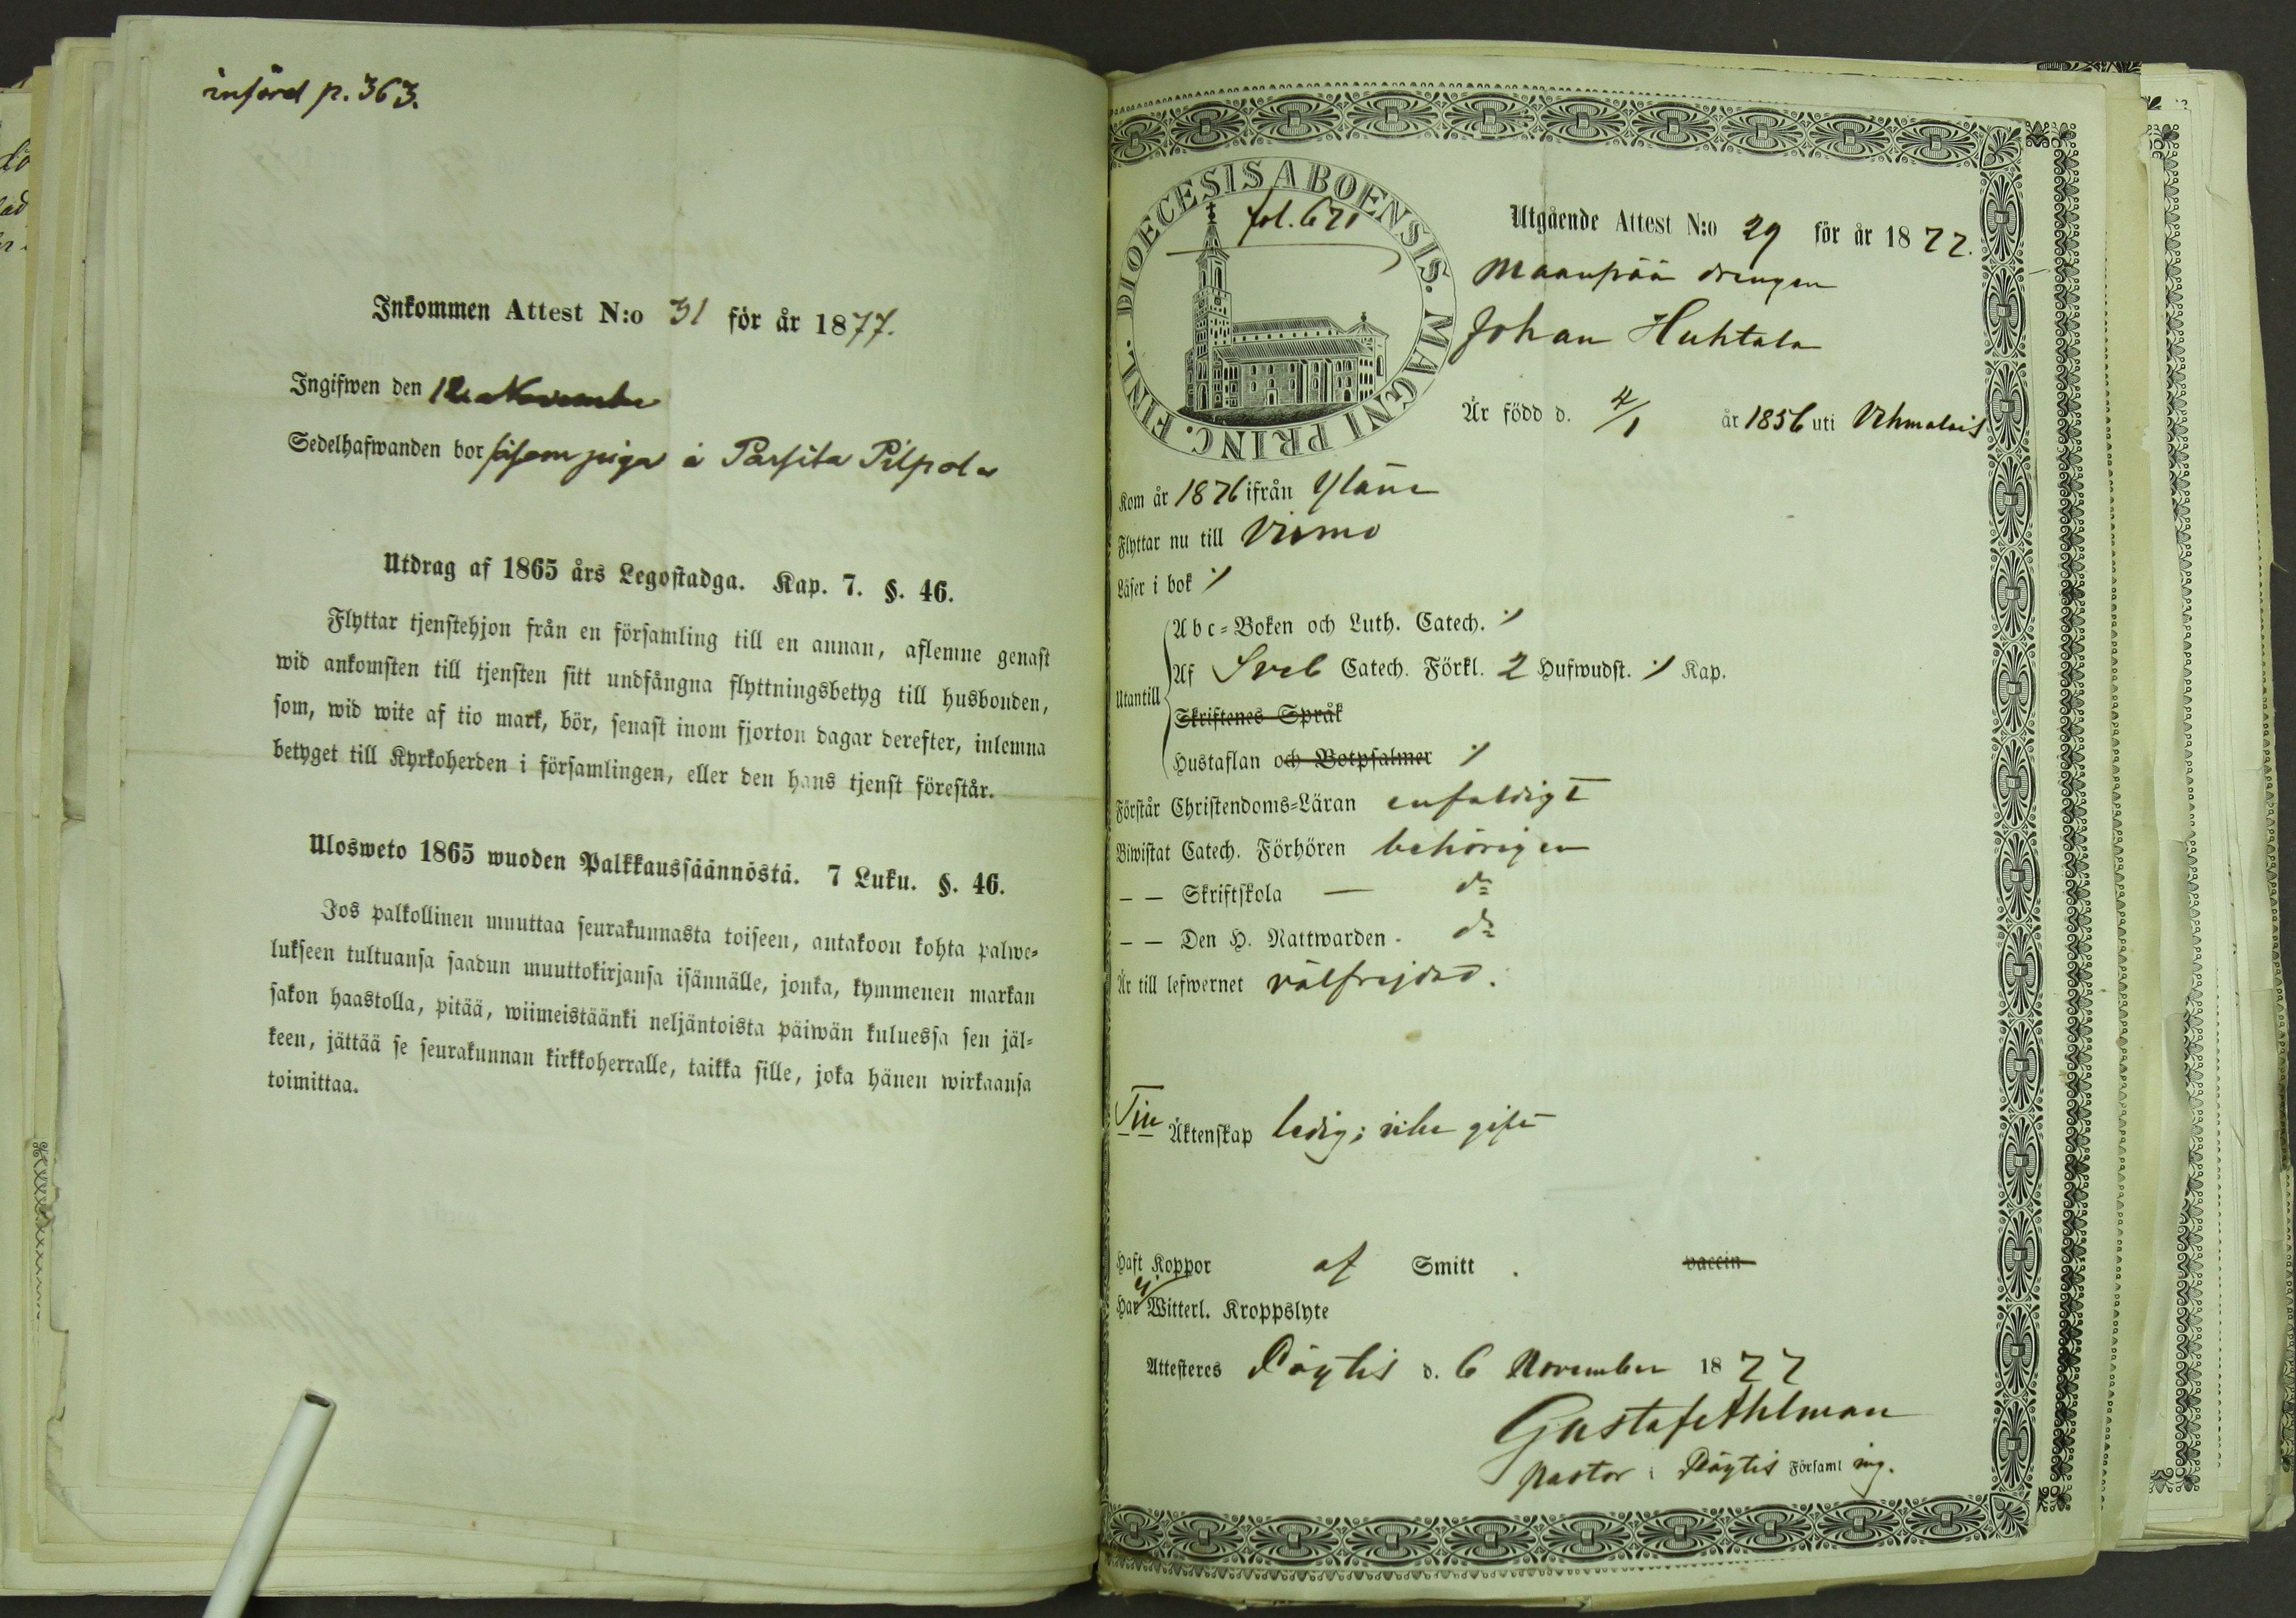 införd p. 363.
Inkommen Attest N:o 31 för år 1877.
Ingifwen den 12 November
Sedelhafwanden bor såsom piga å Parsila Pilpola
Utdrag af 1865 års Legostadga. Kap. 7. §. 46.
Flyttar tjenstehjon från en församling till en annan, aflemne genast
wid ankomsten till tjensten sitt undfångna flyttningsbetyg till husbonden,
som, wid wite af tio mark, bör, senast inom fjorton dagar derefter, inlemna
betyget till Kyrkoherden i församlingen, eller den hans tjenst förestår.
Ulosweto 1865 wuoden Palkkaussäännöstä. 7 Luku. §. 46.
Jos palkollinen muuttaa seurakunnasta toiseen, antakoon kohta palwe-
lukseen tultuansa saadun muuttokirjansa isännälle, jonka, kymmenen markan
sakon haastolla, pitää, wiimeistäänki neljäntoista päiwän kuluessa sen jäl-
keen, jättää se seurakunnan kirkkoherralle, taikka sille, joka hänen wirkaansa
toimittaa.
DIOECESIS ABOENSIS. MAGNI PRINC. FINL.
fol. 671
Utgående Attest N:o 29 för år 1877.
Maanpää drengen
Johan Huhtala
Är född d. 4/1 år 1856 uti Vehmalais
Kom år 1876 ifrån Yläne
Flyttar nu till Virmo
Läser i bok ⁒
Utantill
Abc-Boken och Luth. Catech. ⁒
Af Sveb Catech. Förkl. 2 Hufwudst. ⁒ Kap.
Skriftenes Språk
Hustaflan och Botpsalmer ⁒
Förstår Christendoms-Läran enfaldigt
Biwistat Catech. Förhören behörigen
– – Skriftskola — do
– – Den H. Nattwarden - do
Är till lefwernet välfrejdad.
Till Äktenskap ledig; icke gift
Haft Koppor af Smitt . vaccin
Har ej Witterl. Kroppslyte
Attesteres Pöytis d. 6 November 1877
Gustaf Ahlman
Pastor i Pöytis Församling.